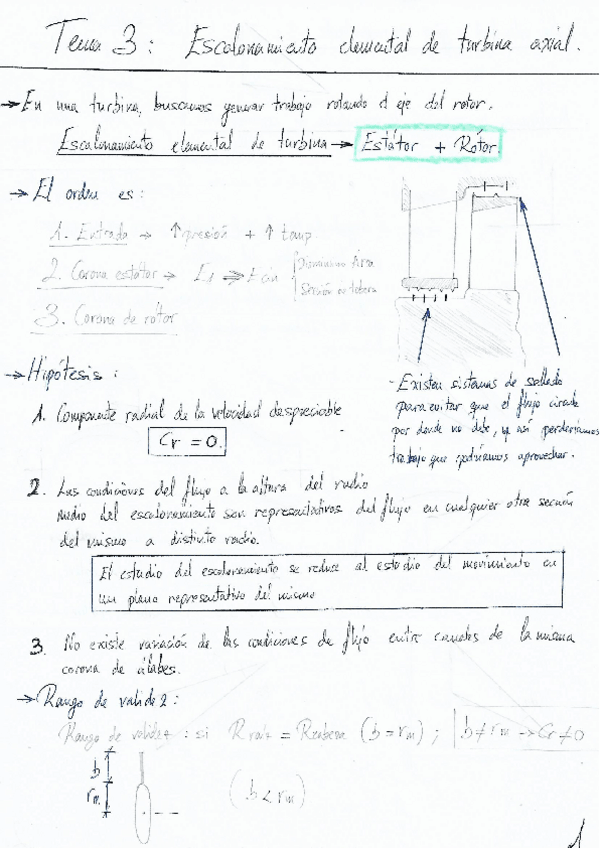 Tema 3: Escalonamiento elemental de turbina axial.
→ En una turbina, buscamos generar trabajo rotando el eje del rotor.
Escalonamiento elemental de turbina → Estátor + Rótor.
→ El orden es:
1. Entrada → ↑presión + ↑temp.
2. Corona estátor → E1 ⇒ Ecin { Disminuimos Área
Sección en tobera
3. Corona de rótor
→ Hipótesis:
- Existen sistemas de sellado
para evitar que el flujo circule
por donde no debe, ya así perderíamos
trabajo que podríamos aprovechar.
1. Componente radial de la velocidad despreciable
Cr = 0.
2. Las condiciones del flujo a la altura del radio
medio del escalonamiento son representativas del flujo en cualquier otra sección
del mismo a distinto radio.
El estudio del escalonamiento se reduce al estudio del movimiento en
un plano representativo del mismo
3. No existe variación de las condiciones de flujo entre canales de la misma
corona de álabes.
→ Rango de validez:
Rango de validez: si Rraiz = Rcabeza (b = rm); b ≠ rm → Cr ≠ 0
b
rm
(b < rm)
1